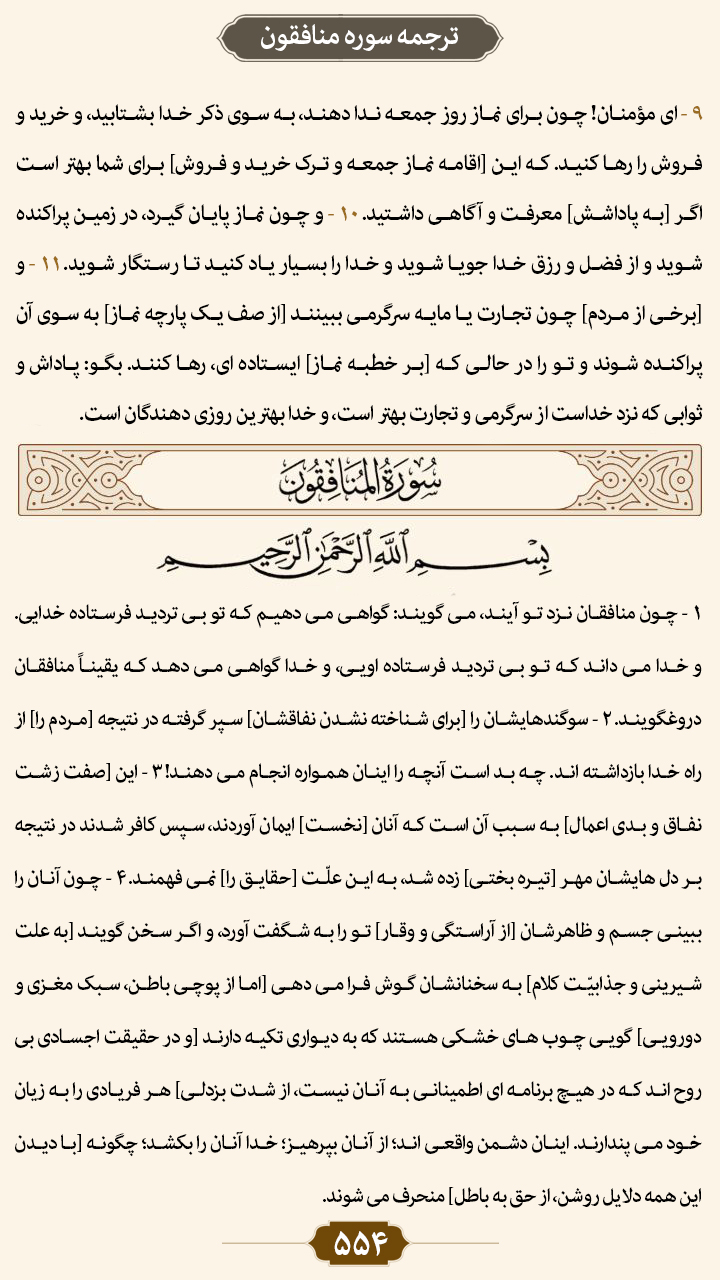 ترجمه سوره منافقون
۹ - ای مؤمنان! چون برای نماز روز جمعه ندا دهند، به سوی ذکر خدا بشتابید، و خرید و
فروش را رها کنید. که این [اقامه نماز جمعه و ترک خرید و فروش] برای شما بهتر است
اگر [به پاداشش] معرفت و آگاهی داشتید. ۱۰ - و چون نماز پایان گیرد، در زمین پراکنده
شوید و از فضل و رزق خدا جویا شوید و خدا را بسیار یاد کنید تا رستگار شوید. ۱۱ - و
[برخی از مردم] چون تجارت یا مایه سرگرمی ببینند [از صف یک پارچه نماز] به سوی آن
پراکنده شوند و تو را در حالی که [بر خطبه نماز] ایستاده ای، رها کنند. بگو: پاداش و
ثوابی که نزد خداست از سرگرمی و تجارت بهتر است، و خدا بهترین روزی دهندگان است.
سُورَةُ المُنَافِقُونَ
بِسْمِ اللَّهِ الرَّحْمَٰنِ الرَّحِيمِ
۱ - چون منافقان نزد تو آیند، می گویند: گواهی می دهیم که تو بی تردید فرستاده خدایی.
و خدا می داند که تو بی تردید فرستاده اویی، و خدا گواهی می دهد که یقیناً منافقان
دروغگویند. ۲ - سوگندهایشان را [برای شناخته نشدن نفاقشان] سپر گرفته در نتیجه [مردم را] از
راه خدا بازداشته اند. چه بد است آنچه را اینان همواره انجام می دهند! ۳ - این [صفت زشت
نفاق و بدی اعمال] به سبب آن است که آنان [نخست] ایمان آوردند، سپس کافر شدند در نتیجه
بر دل هایشان مهر [تیره بختی] زده شد، به این علّت [حقایق را] نمی فهمند. ۴ - چون آنان را
ببینی جسم و ظاهرشان [از آراستگی و وقار] تو را به شگفت آورد، و اگر سخن گویند [به علت
شیرینی و جذابیّت کلام] به سخنانشان گوش فرا می دهی [اما از پوچی باطن، سبک مغزی و
دورویی] گویی چوب های خشکی هستند که به دیواری تکیه دارند [و در حقیقت اجسادی بی
روح اند که در هیچ برنامه ای اطمینانی به آنان نیست، از شدت بزدلی] هر فریادی را به زیان
خود می پندارند. اینان دشمن واقعی اند؛ از آنان بپرهیز؛ خدا آنان را بکشد؛ چگونه [با دیدن
این همه دلایل روشن، از حق به باطل] منحرف می شوند.
۵۵۴